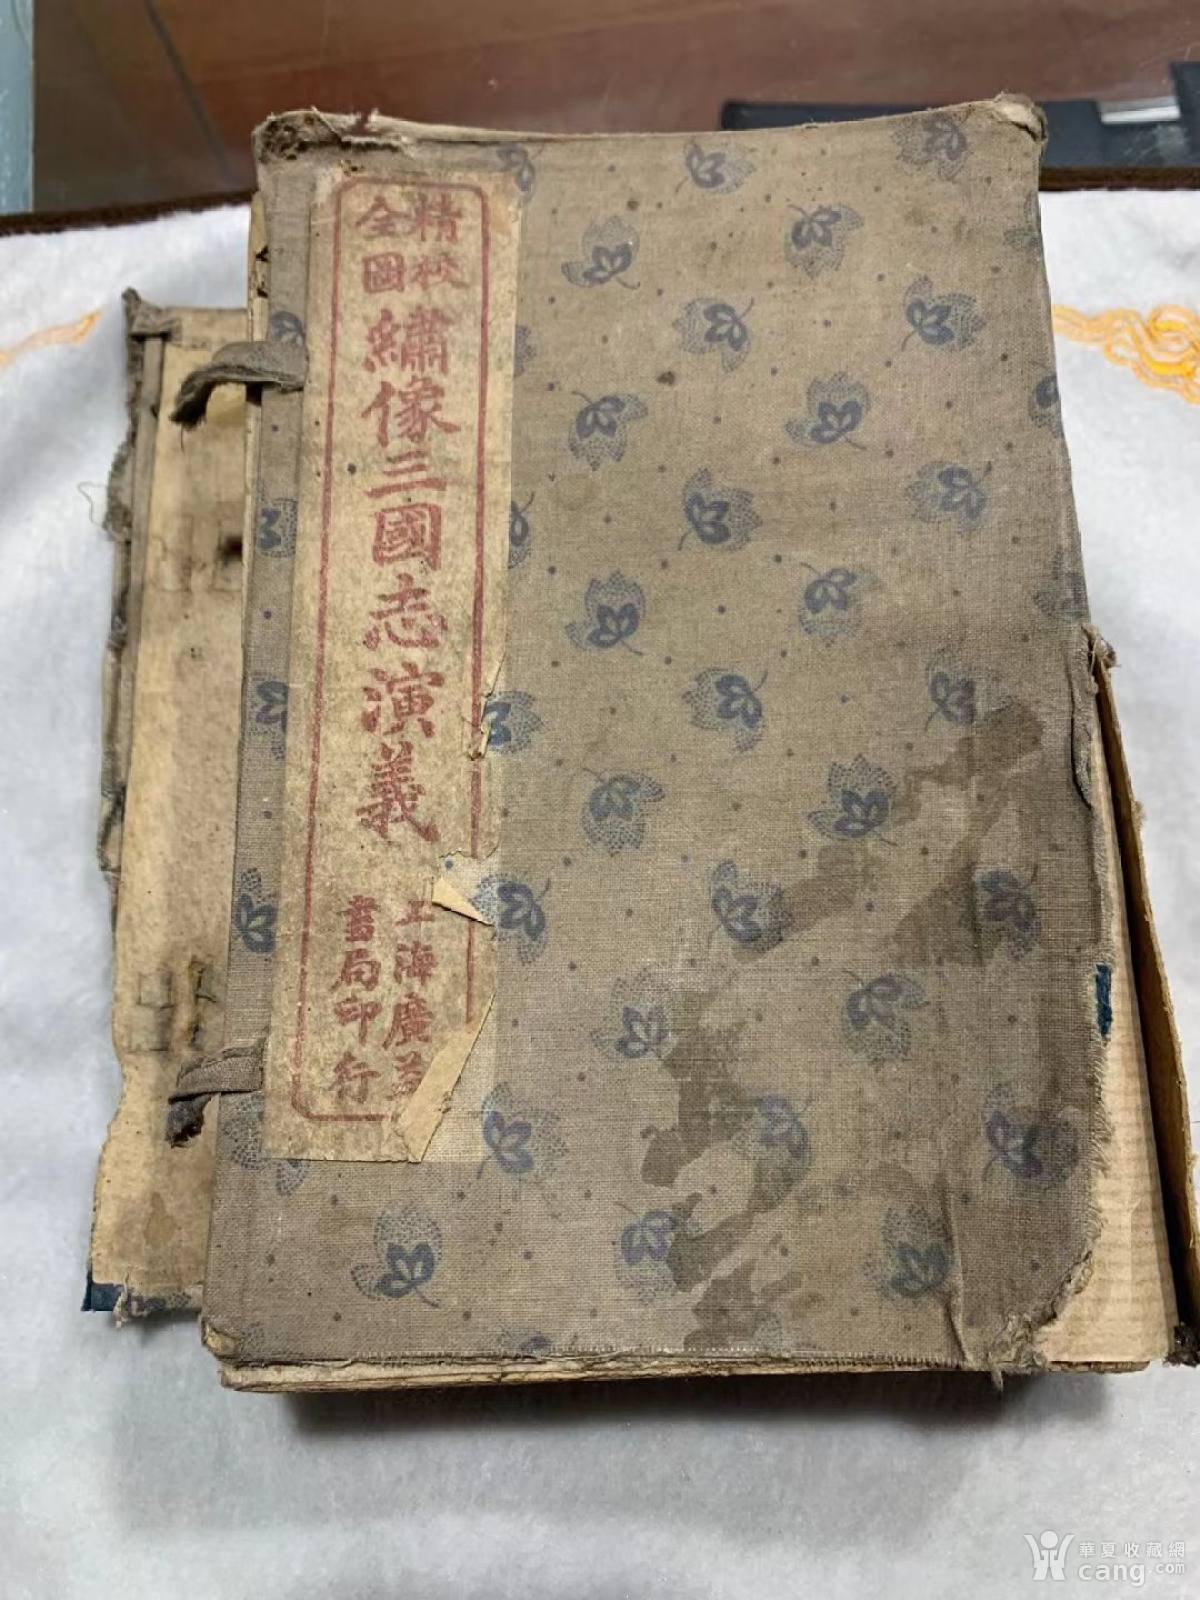 精校
全圖
繡像三國志演義
上海廣益
書局印行
華夏收藏網
cang.com